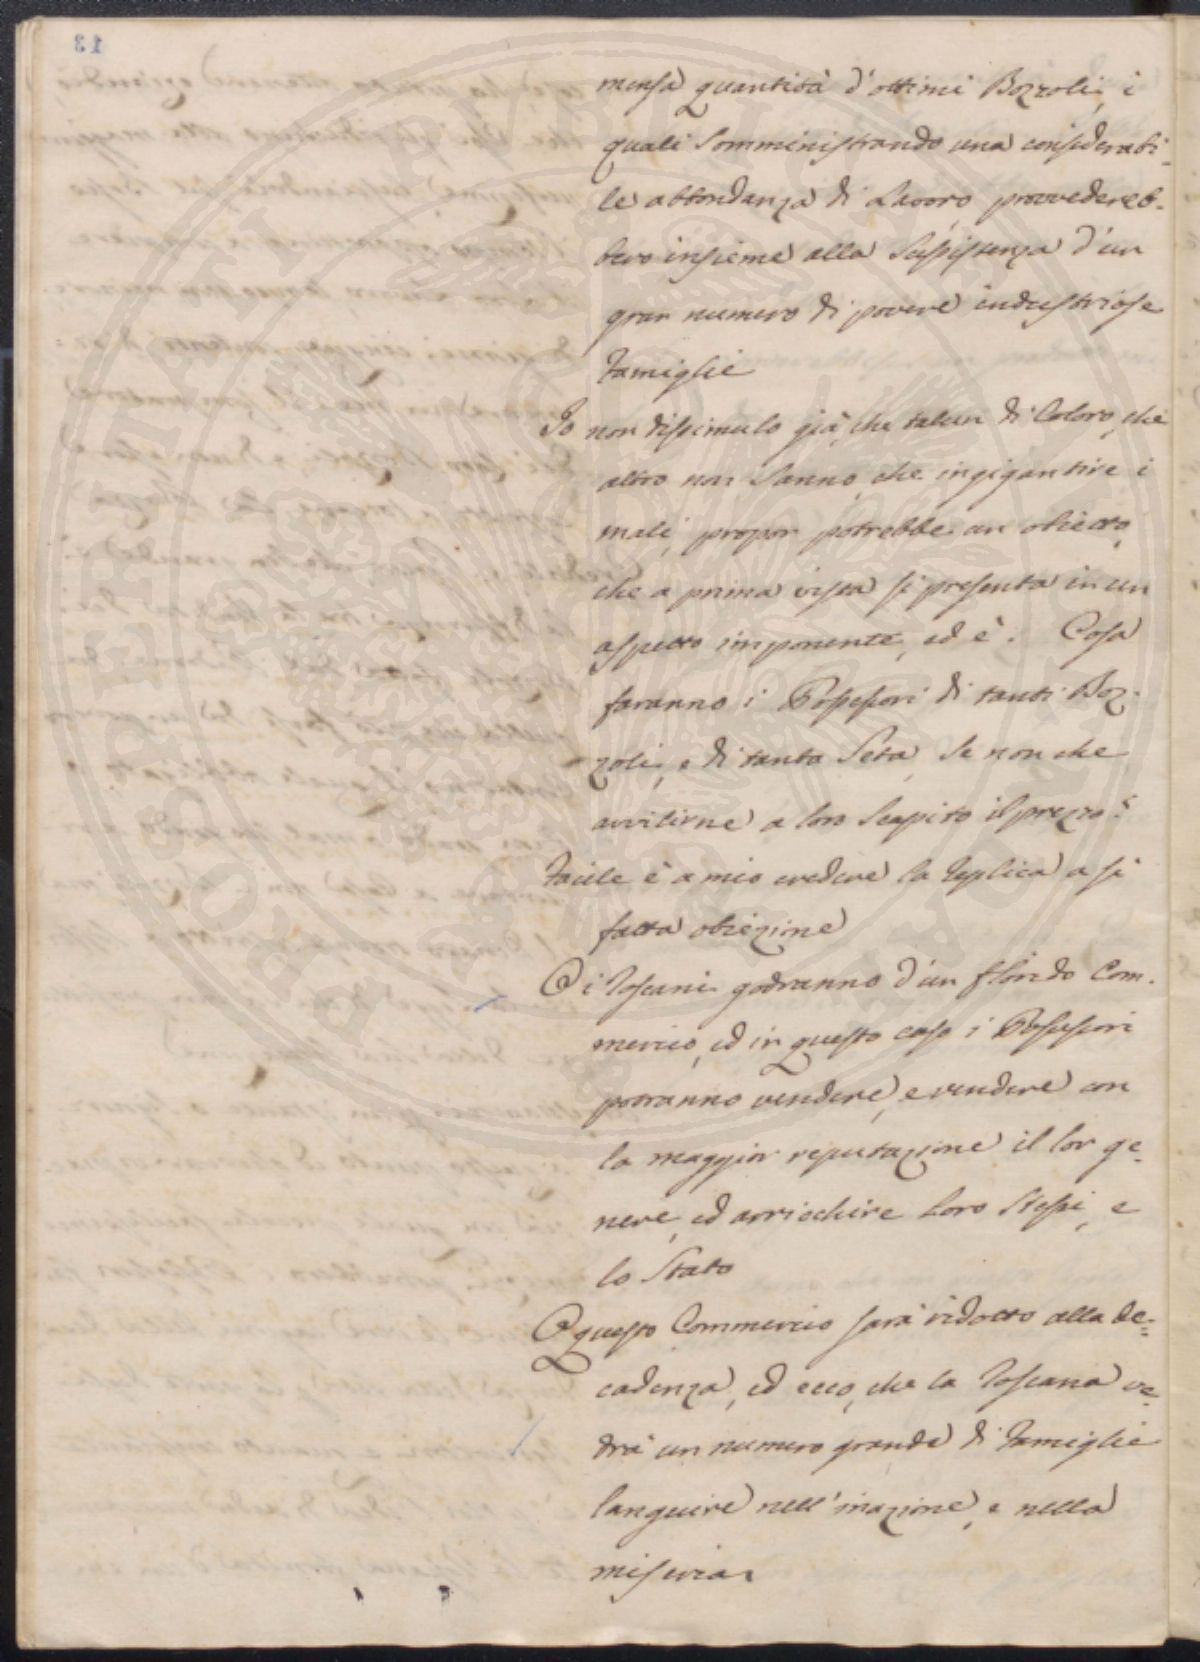 mensa quantità d'ottimi Bozzoli, i
quali somministrando una considerabi-
le abbondanza di Lavoro, provvedereb-
bero insieme alla sussistenza d'un
gran numero di povere industriose
Famiglie
Io non dissimulo già, che talun di Coloro, che
altro non sanno, che ingigantire i
mali, propor potrebbe un obietto,
che a prima vista si presenta in un
aspetto imponente, ed è. Cosa
faranno i Possessori di tanti Boz-
zoli, e di tanta Seta, se non che
avvilirne a loro scapito il prezzo?
Facile è a mio credere la Replica a sì
fatta obiezione
O i Toscani godranno d'un florido Com-
mercio, ed in questo caso i Possessori
potranno vendere, e vendere con
la maggior reputazione il lor ge-
nere, ed arricchire Loro Stessi, e
lo Stato
O questo Commercio sarà ridotto alla de-
cadenza, ed ecco, che la Toscana ve-
drà un numero grande di Famiglie
languire nell'inazione, e nella
miseria.